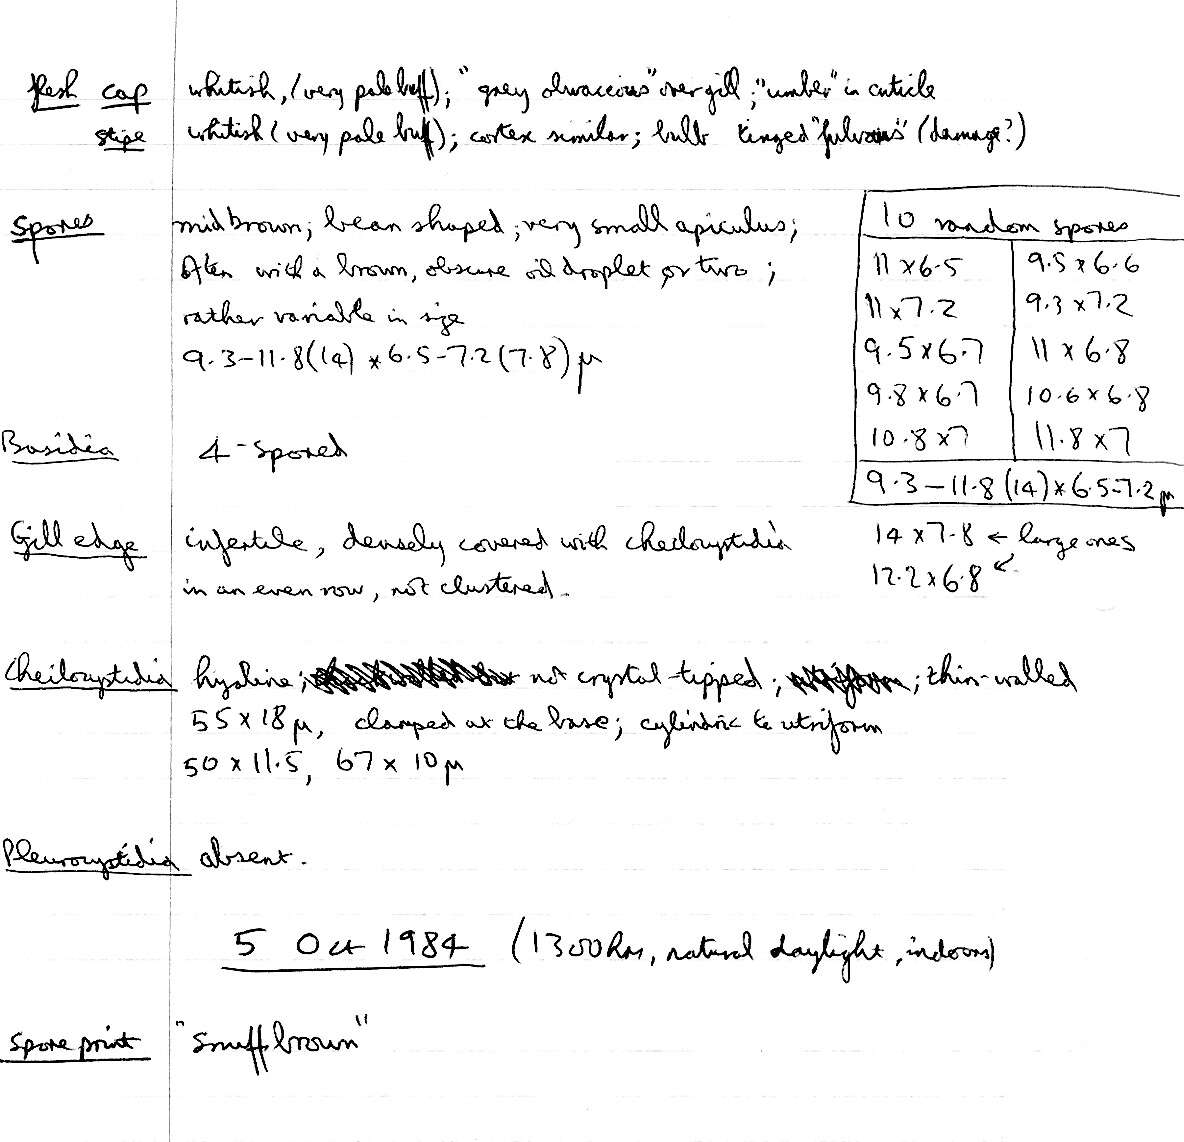 flesh cap whitish, (very pale buff); "grey olivaceous" over gill; "umber" in cuticle
stipe whitish (very pale buff); cortex similar; bulb tinged "fulvous" (damage?)
Spores mid brown; bean shaped; very small apiculus;
often with a brown, obscure oil droplet or two;
rather variable in size
9.3-11.8(14) x 6.5-7.2(7.8) μ
10 random spores
11 x 6.5 9.5 x 6.6
11 x 7.2 9.3 x 7.2
9.5 x 6.7 11 x 6.8
9.8 x 6.7 10.6 x 6.8
10.8 x 7 11.8 x 7
9.3-11.8(14) x 6.5-7.2 μ
14 x 7.8 ← large ones
12.2 x 6.8 ↙
Basidia 4-spored
Gill edge infertile, densely covered with cheilocystidia
in an even row, not clustered.
Cheilocystidia hyaline; not crystal-tipped; ; thin-walled
55 x 18 μ, clamped at the base; cylindric to utriform
50 x 11.5, 67 x 10 μ
Pleurocystidia absent.
5 Oct 1984 (1300hrs, natural daylight, indoors)
Spore print "Snuff brown"